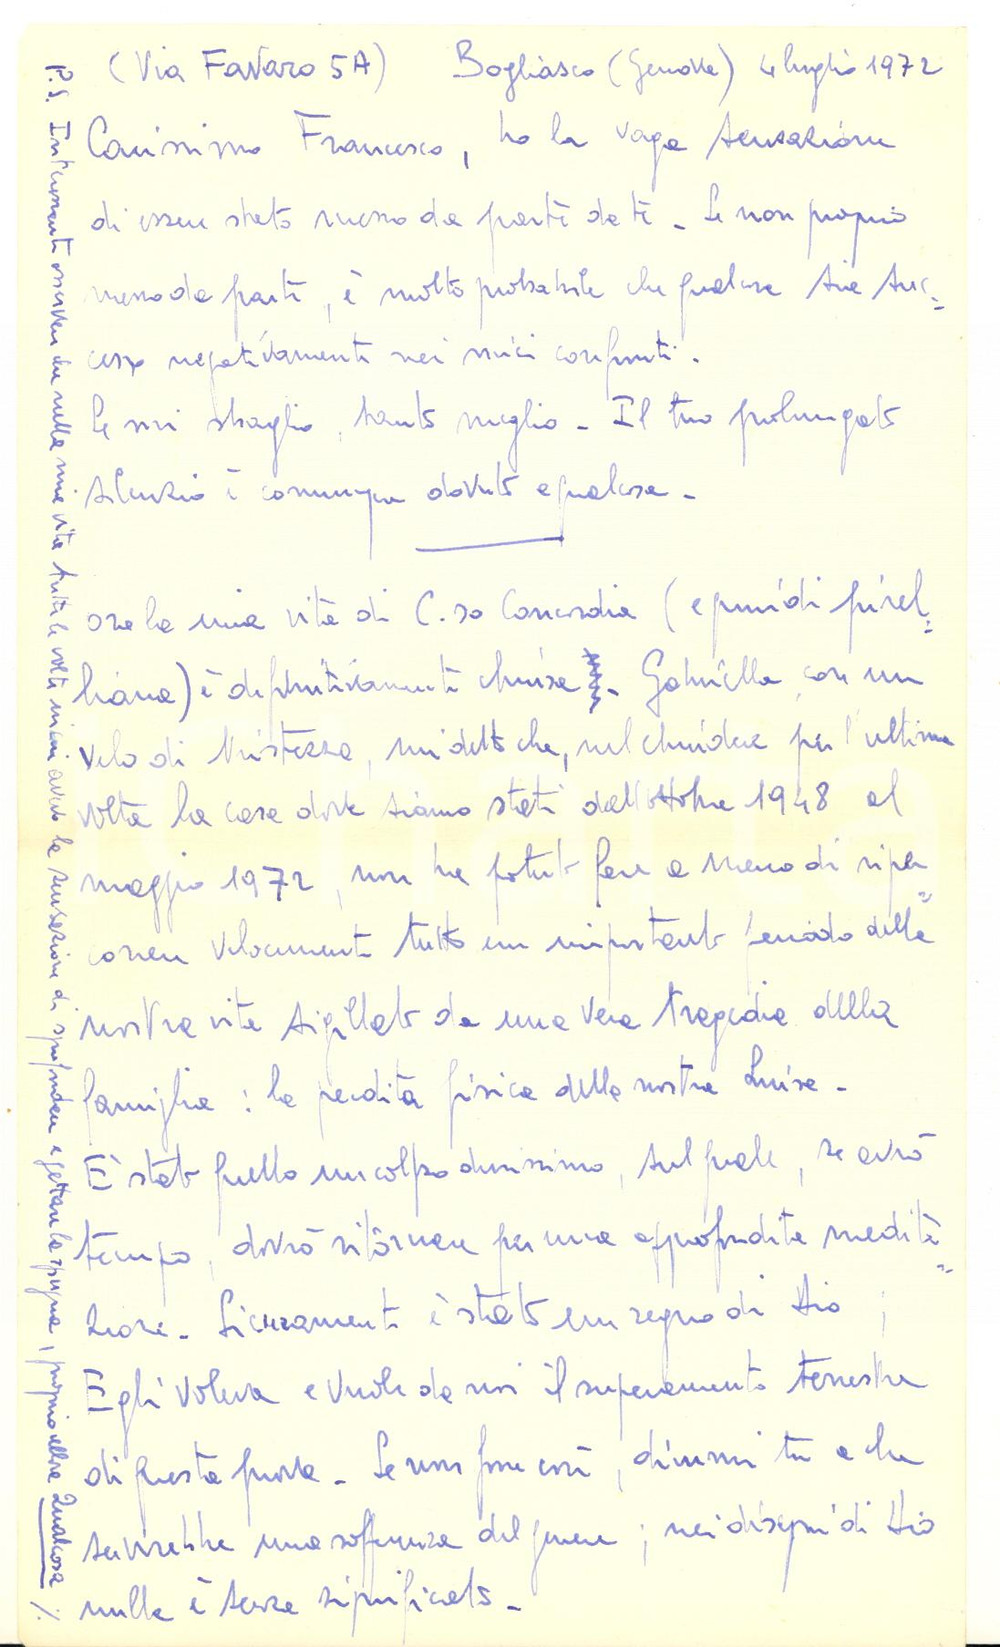 (Via Favaro 5A) Bogliasco (Genova) 4 luglio 1972
Carissimo Francesco, ho la vaga sensazione
di essere stato messo da parte da te - Se non proprio
messo da parte, è molto probabile che qualcosa sia suc=
cesso negativamente nei miei confronti.
Se mi sbaglio, tanto meglio - Il tuo prolungato
silenzio è comunque dovuto a qualcosa -
ora la mia vita di C.so Concordia (e quindi pirel=
liana) è definitivamente chiusa - Gabriella, con un
velo di tristezza, mi detto che, nel chiudere per l'ultima
volta la casa dove siamo stati dall'ottobre 1948 al
maggio 1972, non ha potuto fare a meno di riper=
correre velocemente tutto un importante periodo della
nostra vita sigillato da una vera tragedia della
famiglia: la perdita fisica della nostra Luisa -
E' stato quello un colpo durissimo, sul quale, se avrò
tempo, dovrò ritornare per una approfondita medita=
zione - Sicuramente è stato un segno di Dio;
Egli voleva e vuole da noi il superamento terrestre
di questa prova - Se non fosse così, dimmi tu a che
servirebbe una sofferenza del genere; nei disegni di Dio
nulla è senza significato -
P.S. Interessante osservare che nella mia vita tutte le volte in cui avuto la sensazione di sprofondare e gettare la spugna, proprio allora Qualcosa ./.